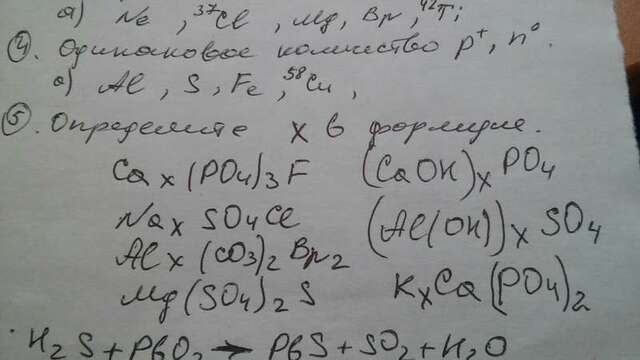 а) Ne, ³⁷Cl, Mg, Br, ⁴²Ti
④. Одинаковое количество p⁺, n⁰.
а) Al, S, Fe, ⁵⁸Cu,
⑤. Определите x в формуле.
Caₓ(PO₄)₃F (CaOH)ₓPO₄
Naₓ SO₄Cl (Al(OH))ₓ SO₄
Alₓ(CO₃)₂Br₂
Mg(SO₄)₂S KₓCa(PO₄)₂
H₂S + PbO₂ → PbS + SO₂ + H₂O